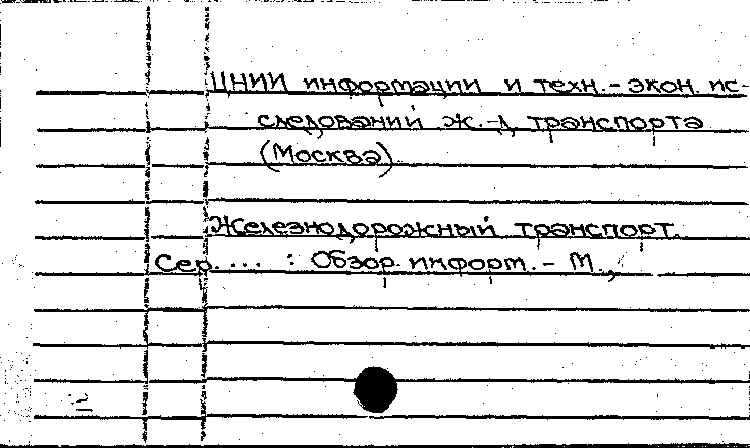 ЦНИИ информации и техн.-экон. ис-
следований ж.-д. транспорта
(Москва)
Железнодорожный транспорт.
Сер.... : Обзор. информ. - М.,